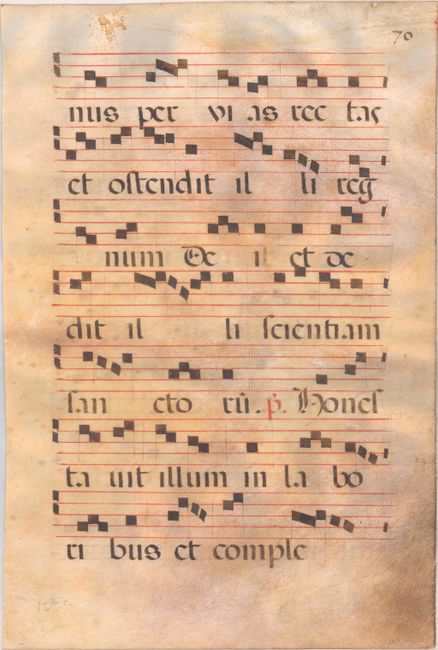 70
nus per vi as rec tas
et ostendit il li reg
num De i et de
dit il li scientiam
san cto rū. p. Hones
ta uit illum in la bo
ri bus et comple
15th c.